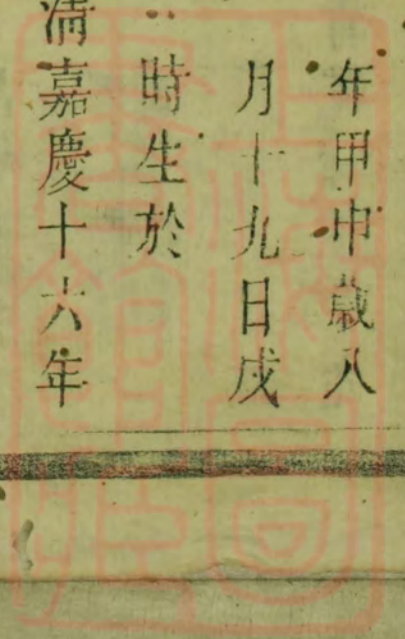 年甲申歲八
月十九日戌
時生於
清嘉慶十六年